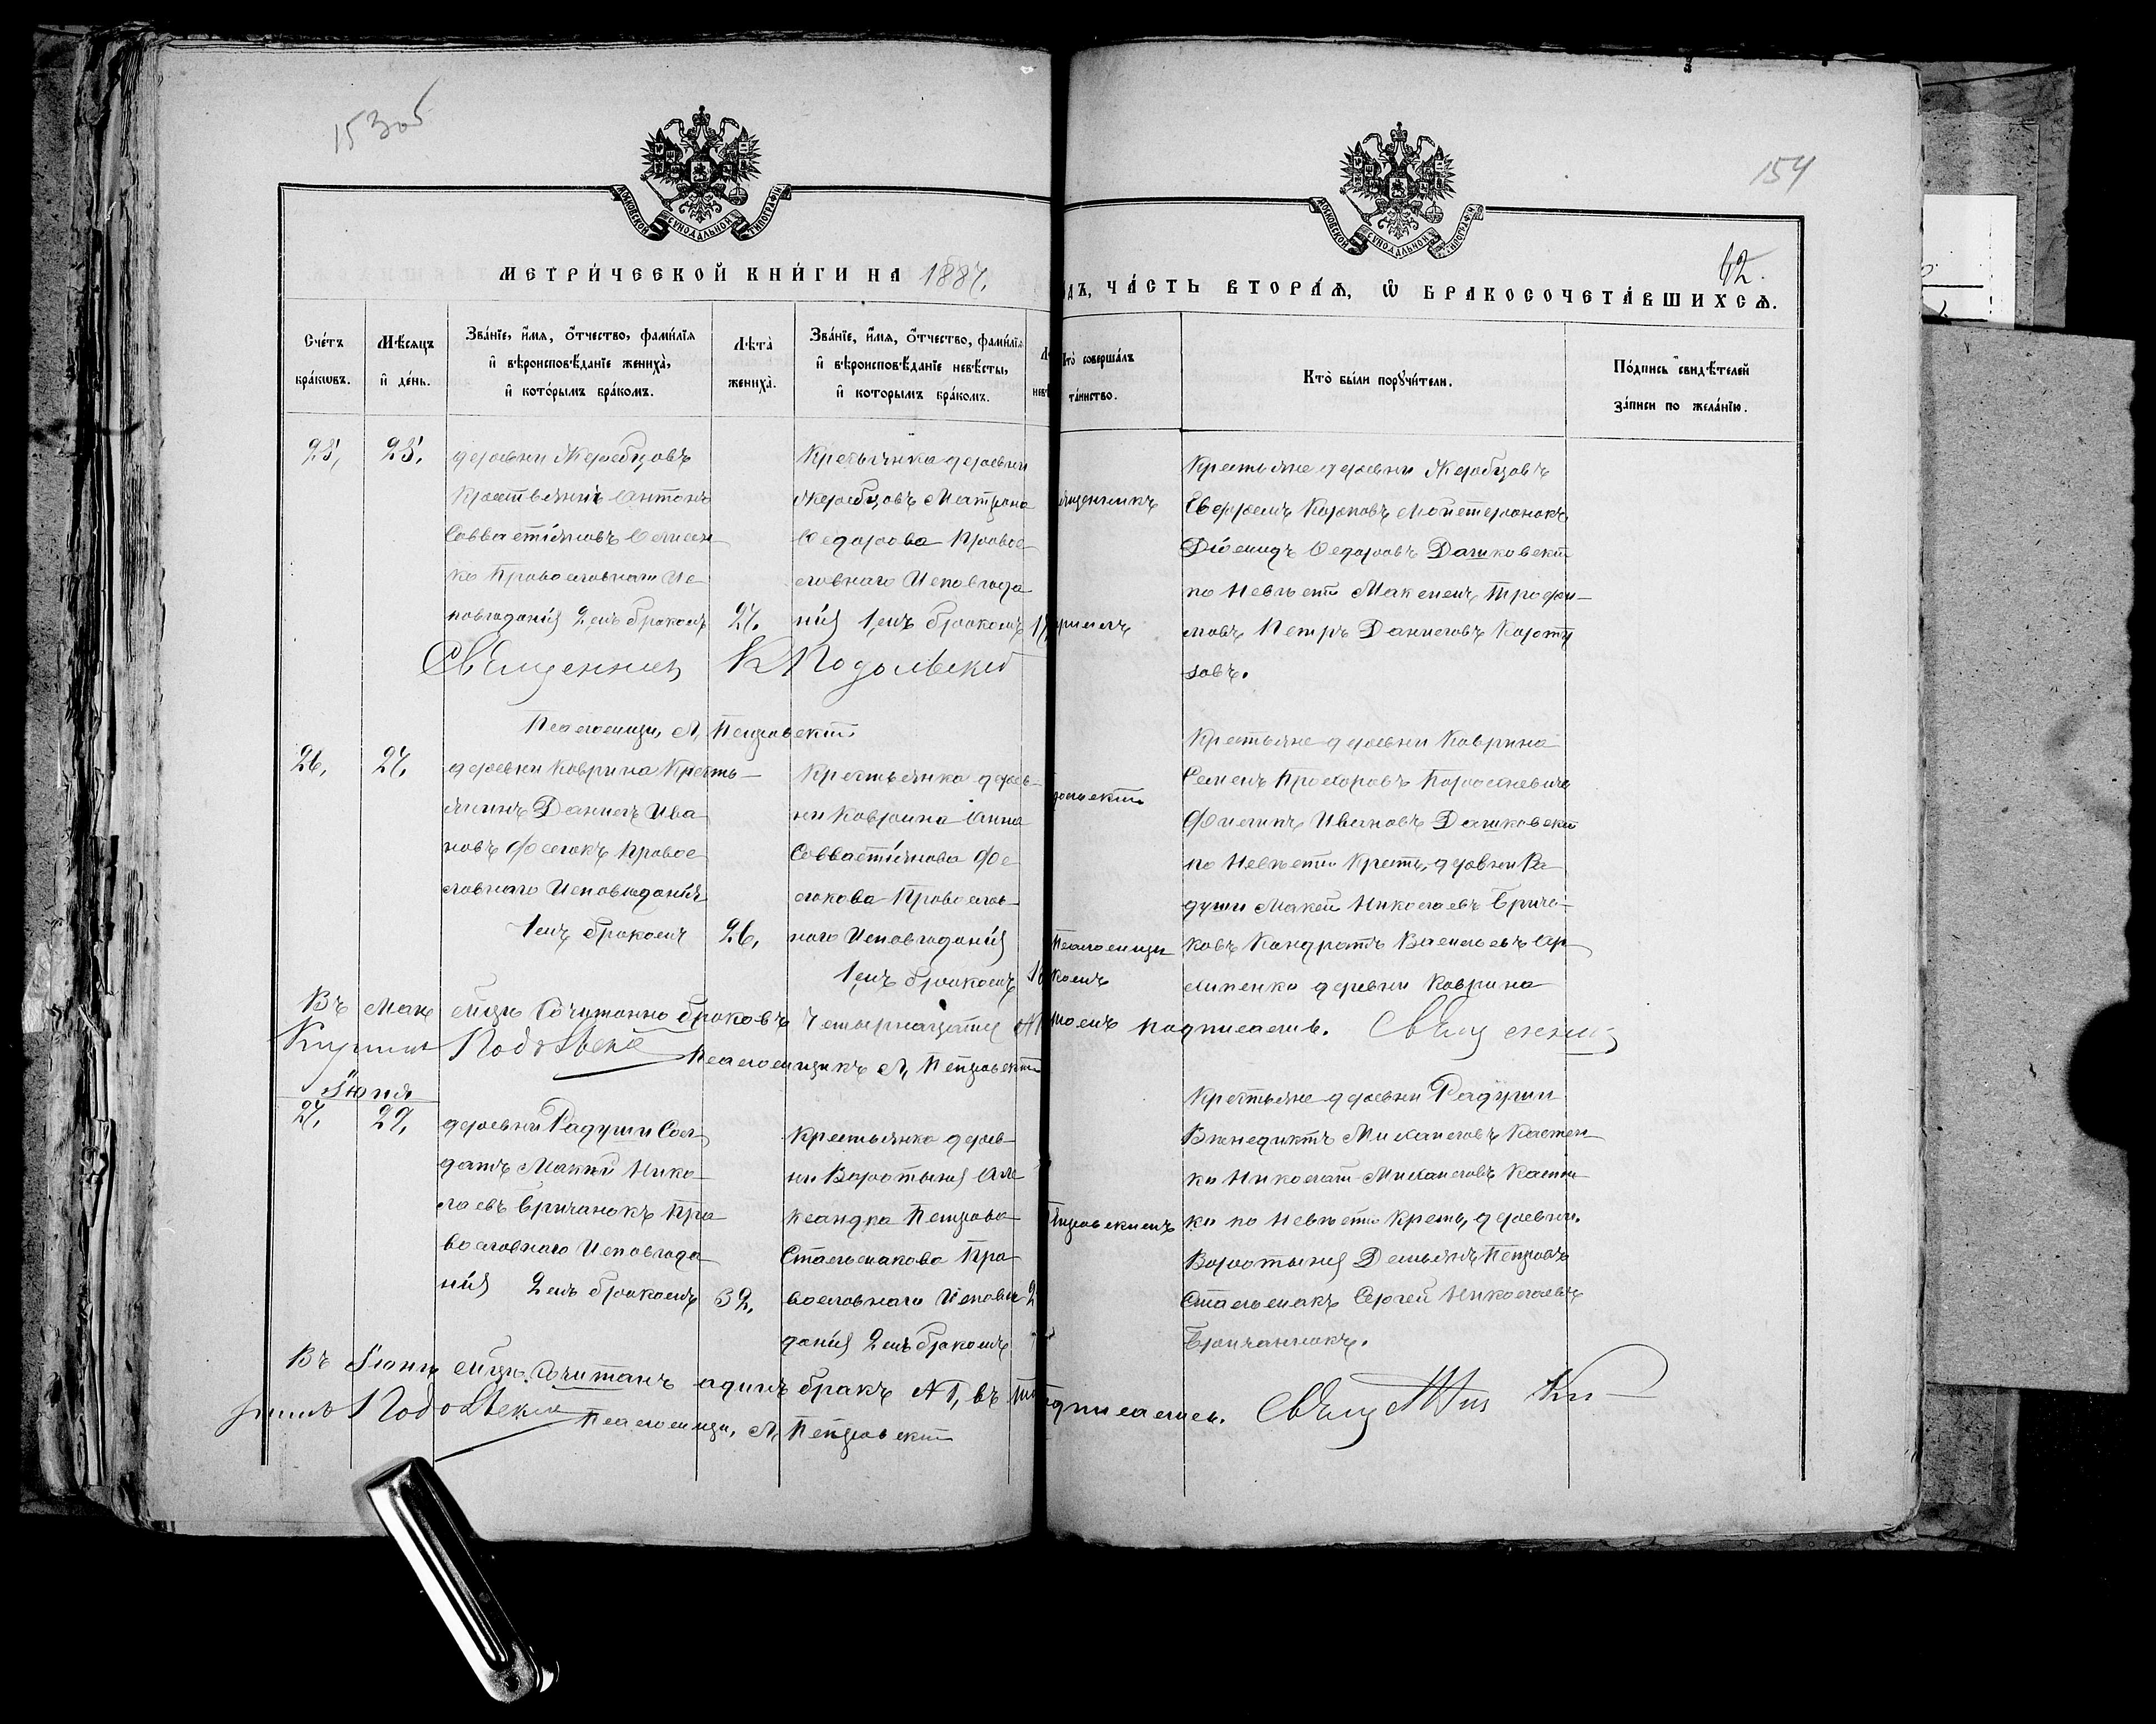 153об
154
МОСКОВСКОЙ СѴНОДАЛЬНОЙ ТИПОГРАФІИ
МОСКОВСКОЙ СѴНОДАЛЬНОЙ ТИПОГРАФІИ
МЕТРИ́ЧЕСКОЙ КНИ́ГИ НА 1887,
ДЪ, ЧА́СТЬ ВТОРА́Ѧ, Ѽ БРАКОСОЧЕТА́ВШИХСѦ.
62.
Сче́тъ
бра́кѡвъ.
Мѣ́сѧцъ
и҆ де́нь.
Зва́нїе, и҆́мѧ, ѻ҆́тчество, фами́лїѧ
и҆ вѣроисповѣ́данїе жениха̀,
и҆ кото́рымъ бра́комъ.
Лѣта̀
жениха̀.
Зва́нїе, и҆́мѧ, ѻ҆́тчество, фами́лїѧ
и҆ вѣроисповѣ́данїе невѣ́сты,
и҆ которымъ бра́комъ.
Кто̀ соверша́лъ
та́инство.
Кто̀ бы́ли порꙋчи́тели.
По́дпись свидѣ́телей
за́писи по жела́нїю.
25,
25,
деревни Жеребцовъ
Крестьянинъ Антонъ
Савватіяновъ
ко Православнаго Ис-
повѣданія 2,мъ бракомъ
27,
Крестьянка деревни
Жеребцовъ Матрона
Ѳедорова Правос-
лавнаго Исповѣда
нія 1,мъ бракомъ
Крестьяне деревни Жеребцовъ
Евфремъ Карповъ
Діомидъ Ѳедоровъ Дашковскій
по Невѣстѣ Максимъ Трофи-
мовъ Петръ Даниловъ
зовъ.
Священникъ К Подольскій
Псаломщи, Л, Петровскій
26,
27,
деревни Коврина Кресть-
янинъ Данилъ Ива
новъ Правос
лавнаго Исповѣданія
1,мъ бракомъ
26,
Крестьянка дерев-
ни Коврина Анна
Савватіянова
Православ-
наго Исповѣданія
1,мъ бракомъ
Псаломщи
Крестьяне деревни Коврина
Семенъ Прохоровъ
Филипъ Ивановъ Дашковскій
по Невѣстѣ Кресть, деревни Ра
души Макей Николаевъ
Кондратъ Васильевъ
деревни Коврина
Въ Маѣ мцѣ Сочитанно браковъ Четырнацать
подписались. Священник
Кирилъ Подольскій Псаломщикъ Л, Петровскій
Іюня
27,
29,
деревни Радуши Сол
датъ Макей Нико
лаевъ Бричанокъ Пра
вославнаго Исповѣда
нія 2,мъ бракомъ
32,
Крестьянка дерев-
ни Воротыня Але
ксандра Петрова
Стельмакова Пра
вославнаго Исповѣ
данія 2,мъ бракомъ
Петровскимъ
Крестьяне деревни Радуши
Венедиктъ Михаиловъ Костен
ко Николай Михаиловъ Костен
ко по Невѣстѣ Кресть, деревни
Воротыня Демьянъ Петровъ
Стельмакъ Сергей Николаевъ
Бричанокъ.
Въ Іюнѣ мцѣ Сочитанъ адинъ бракъ №1, въ
подписались. Священник Ки
рилъ Подольскій Псаломщи, Л, Петровскій